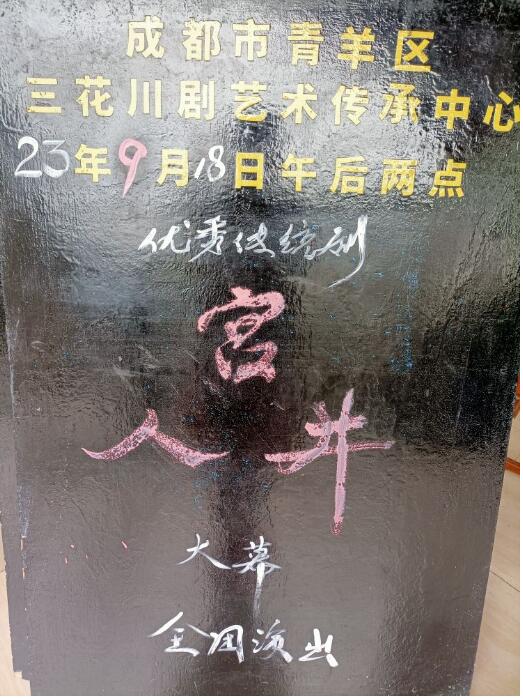 成都市青羊区
三花川剧艺术传承中心
23年9月18日午后两点
优秀传统剧
宫
人井
大幕
全团演出